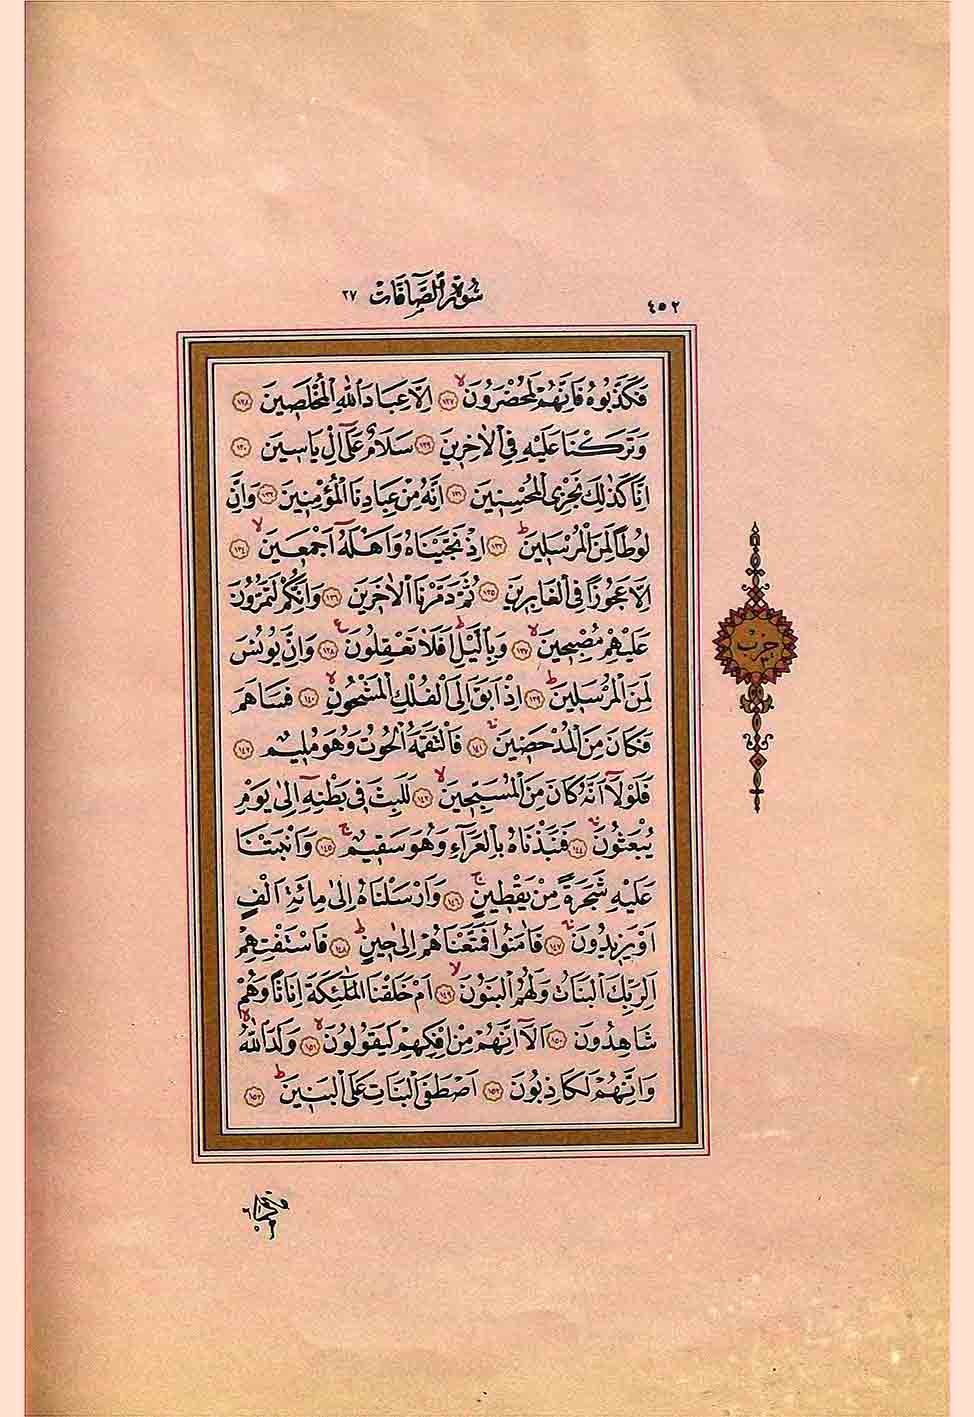 سُورَةُ الصَّٓافَّاتِ ٣٧
٤٥٢
فَكَذَّبُوهُ فَاِنَّهُمْ لَمُحْضَرُونَۙ ﴿١٢٧﴾ اِلَّا عِبَادَ اللّٰهِ الْمُخْلَصِينَ ﴿١٢٨﴾
وَتَرَكْنَا عَلَيْهِ فِي الْاٰخِرِينَ ﴿١٢٩﴾ سَلَامٌ عَلٰٓى اِلْ يَاسِينَ ﴿١٣٠﴾
اِنَّا كَذٰلِكَ نَجْزِي الْمُحْسِنِينَ ﴿١٣١﴾ اِنَّهُ مِنْ عِبَادِنَا الْمُؤْمِنِينَ ﴿١٣٢﴾ وَاِنَّ
لُوطًا لَمِنَ الْمُرْسَلِينَۜ ﴿١٣٣﴾ اِذْ نَجَّيْنَاهُ وَاَهْلَهُٓ اَجْمَعِينَۙ ﴿١٣٤﴾
اِلَّا عَجُوزًا فِي الْغَابِرِينَ ﴿١٣٥﴾ ثُمَّ دَمَّرْنَا الْاٰخَرِينَ ﴿١٣٦﴾ وَاِنَّكُمْ لَتَمُرُّونَ
عَلَيْهِمْ مُصْبِحِينَۙ ﴿١٣٧﴾ وَبِالَّيْلِۜ اَفَلَا تَعْقِلُونَ۟ ﴿١٣٨﴾ وَاِنَّ يُونُسَ
لَمِنَ الْمُرْسَلِينَۜ ﴿١٣٩﴾ اِذْ اَبَقَ اِلَى الْفُلْكِ الْمَشْحُونِۙ ﴿١٤٠﴾ فَسَاهَمَ
فَكَانَ مِنَ الْمُدْحَضِينَۚ ﴿١٤١﴾ فَالْتَقَمَهُ الْحُوتُ وَهُوَ مُلِيمٌ ﴿١٤٢﴾
فَلَوْلَٓا اَنَّهُ كَانَ مِنَ الْمُسَبِّحِينَۙ ﴿١٤٣﴾ لَلَبِثَ فِي بَطْنِهِٓ اِلٰى يَوْمِ
يُبْعَثُونَۚ ﴿١٤٤﴾ فَنَبَذْنَاهُ بِالْعَرَٓاءِ وَهُوَ سَقِيمٌۚ ﴿١٤٥﴾ وَاَنْبَتْنَا
عَلَيْهِ شَجَرَةً مِنْ يَقْطِينٍۚ ﴿١٤٦﴾ وَاَرْسَلْنَاهُ اِلٰى مِائَةِ اَلْفٍ
اَوْ يَزِيدُونَۚ ﴿١٤٧﴾ فَاٰمَنُوا فَمَتَّعْنَاهُمْ اِلٰى حِينٍۜ ﴿١٤٨﴾ فَاسْتَفْتِهِمْ
اَلِرَبِّكَ الْبَنَاتُ وَلَهُمُ الْبَنُونَۙ ﴿١٤٩﴾ اَمْ خَلَقْنَا الْمَلٰٓئِكَةَ اِنَاثًا وَهُمْ
شَاهِدُونَ ﴿١٥٠﴾ اَلَٓا اِنَّهُمْ مِنْ اِفْكِهِمْ لَيَقُولُونَۙ ﴿١٥١﴾ وَلَدَ اللّٰهُۙ
وَاِنَّهُمْ لَكَاذِبُونَ ﴿١٥٢﴾ اَصْطَفَى الْبَنَاتِ عَلَى الْبَنِينَۜ ﴿١٥٣﴾
حزب